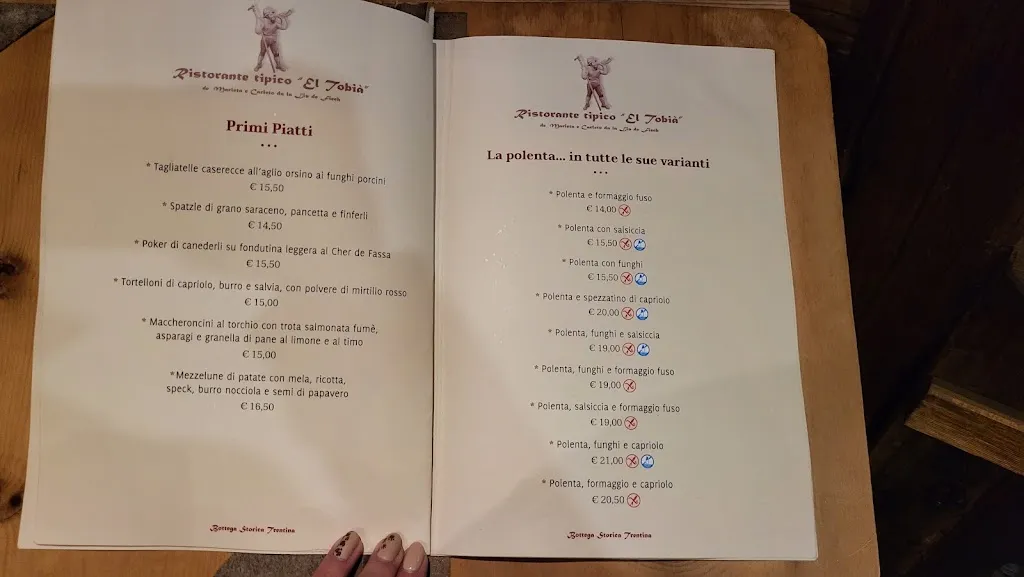 Ristorante tipico "El Tobià"
de Marieta e Carleto da la
Primi Piatti
* Tagliatelle caserecce all'aglio orsino ai funghi porcini
€ 15,50
* Spatzle di grano saraceno, pancetta e finferli
€ 14,50
* Poker di canederli su fondutina leggera al Cher de Fassa
€ 15,50
* Tortelloni di capriolo, burro e salvia, con polvere di mirtillo rosso
€ 15,00
* Maccheroncini al torchio con trota salmonata fumè,
asparagi e granella di pane al limone e al timo
€ 15,00
*Mezzelune di patate con mela, ricotta,
speck, burro nocciola e semi di papavero
€ 16,50
Bottega Storica Trentina
Ristorante tipico "El Tobià"
de Marieta e Carleto da la
La polenta... in tutte le sue varianti
* Polenta e formaggio fuso
€ 14,00
* Polenta con salsiccia
€ 15,50
* Polenta con funghi
€ 15,50
* Polenta e spezzatino di capriolo
€ 20,00
* Polenta, funghi e salsiccia
€ 19,00
* Polenta, funghi e formaggio fuso
€ 19,00
* Polenta, salsiccia e formaggio fuso
€ 19,00
* Polenta, funghi e capriolo
€ 21,00
* Polenta, formaggio e capriolo
€ 20,50
Bottega Storica Trentina